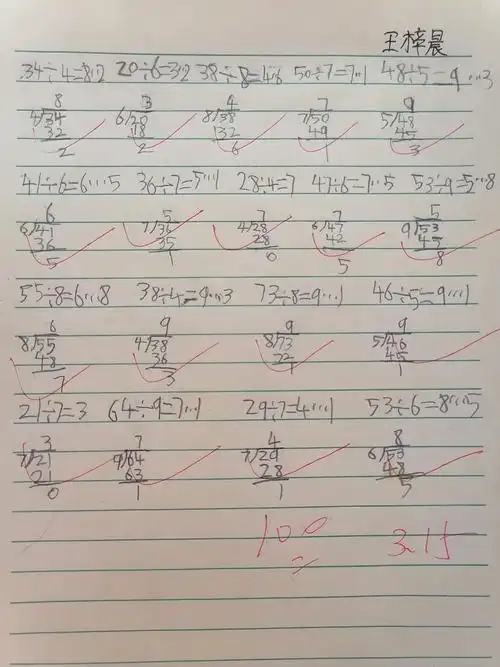 王梓晨
34÷4=8…2 20÷6=3…2 38÷8=4…6 50÷7=7…1 48÷5=9…3
8 3 4 7 9
4/34 6/20 8/38 7/50 5/48
32 18 32 49 45
2 2 6 1 3
41÷6=6…5 36÷7=5…1 28÷4=7 47÷6=7…5 53÷9=5…8
6 5 7 7 5
6/41 7/36 4/28 6/47 9/53
36 35 28 42 45
5 1 0 5 8
55÷8=6…8 38÷4=9…3 73÷8=9…1 46÷5=9…1
6 9 9 9
8/55 4/38 8/73 5/46
48 36 45
7 3 1 1
21÷7=3 64÷9=7…1 29÷7=4…1 53÷6=8…5
3 7 4 8
7/21 9/64 7/29 6/53
21 63 28 48
0 1 1 5
100 3.15